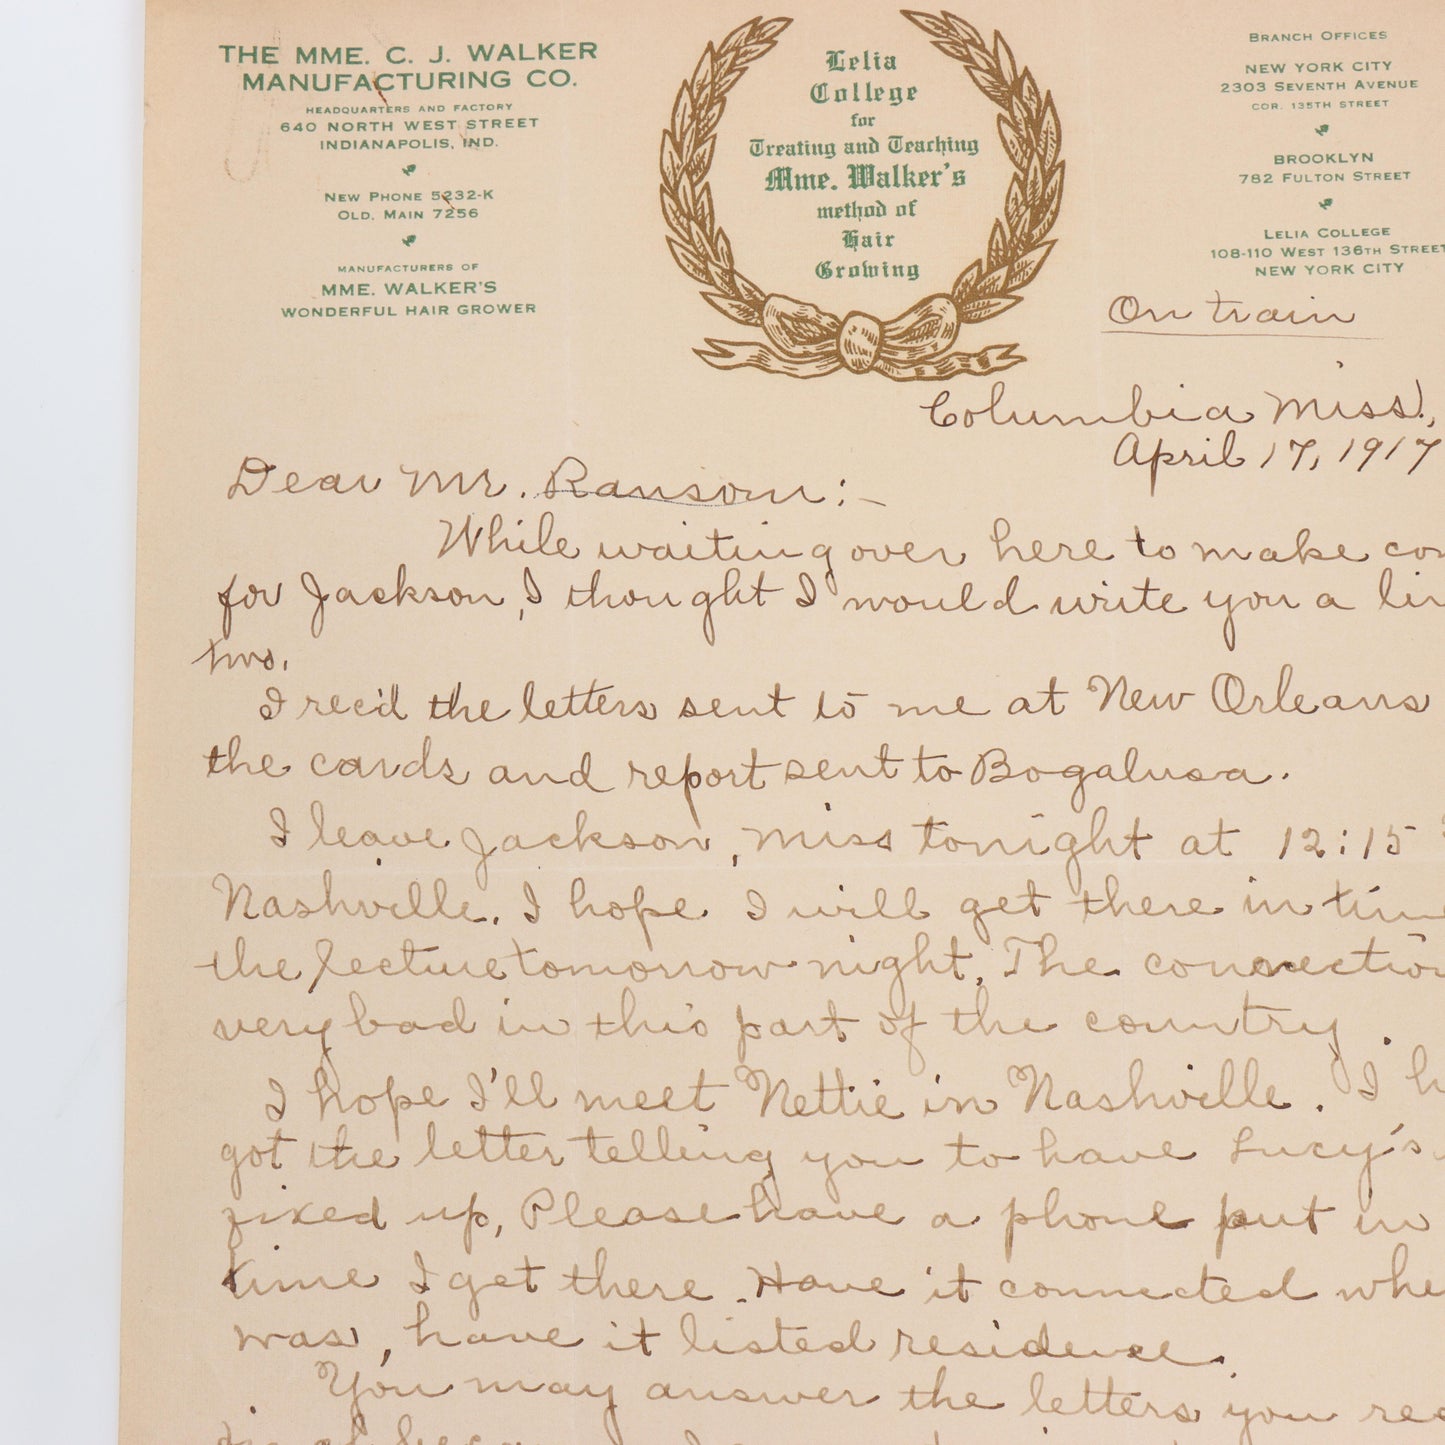 THE MME. C. J. WALKER
MANUFACTURING CO.
HEADQUARTERS AND FACTORY
640 NORTH WEST STREET
INDIANAPOLIS, IND.
NEW PHONE 5232-K
OLD. MAIN 7256
MANUFACTURERS OF
MME. WALKER'S
WONDERFUL HAIR GROWER
Lelia
College
for
Treating and Teaching
Mme. Walker's
method of
Hair
Growing
BRANCH OFFICES
NEW YORK CITY
2303 SEVENTH AVENUE
COR. 135TH STREET
BROOKLYN
782 FULTON STREET
LELIA COLLEGE
108-110 WEST 136TH STREET
NEW YORK CITY
On train
Columbia Miss.,
April 17, 1917
Dear Mr. Ransom:-
While waiting over here to make con
for Jackson, I thought I would write you a lin
two.
I rec'd the letters sent to me at New Orleans
the cards and report sent to Bogalusa.
I leave Jackson, Miss tonight at 12:15
Nashville. I hope I will get there in tim
the lecture tomorrow night. The connection
very bad in this part of the country.
I hope I'll meet Nettie in Nashville. I h
got the letter telling you to have Lucy's
fixed up, Please have a phone put in
time I get there. Have it connected whe
was, have it listed residence.
You may answer the letters you rec